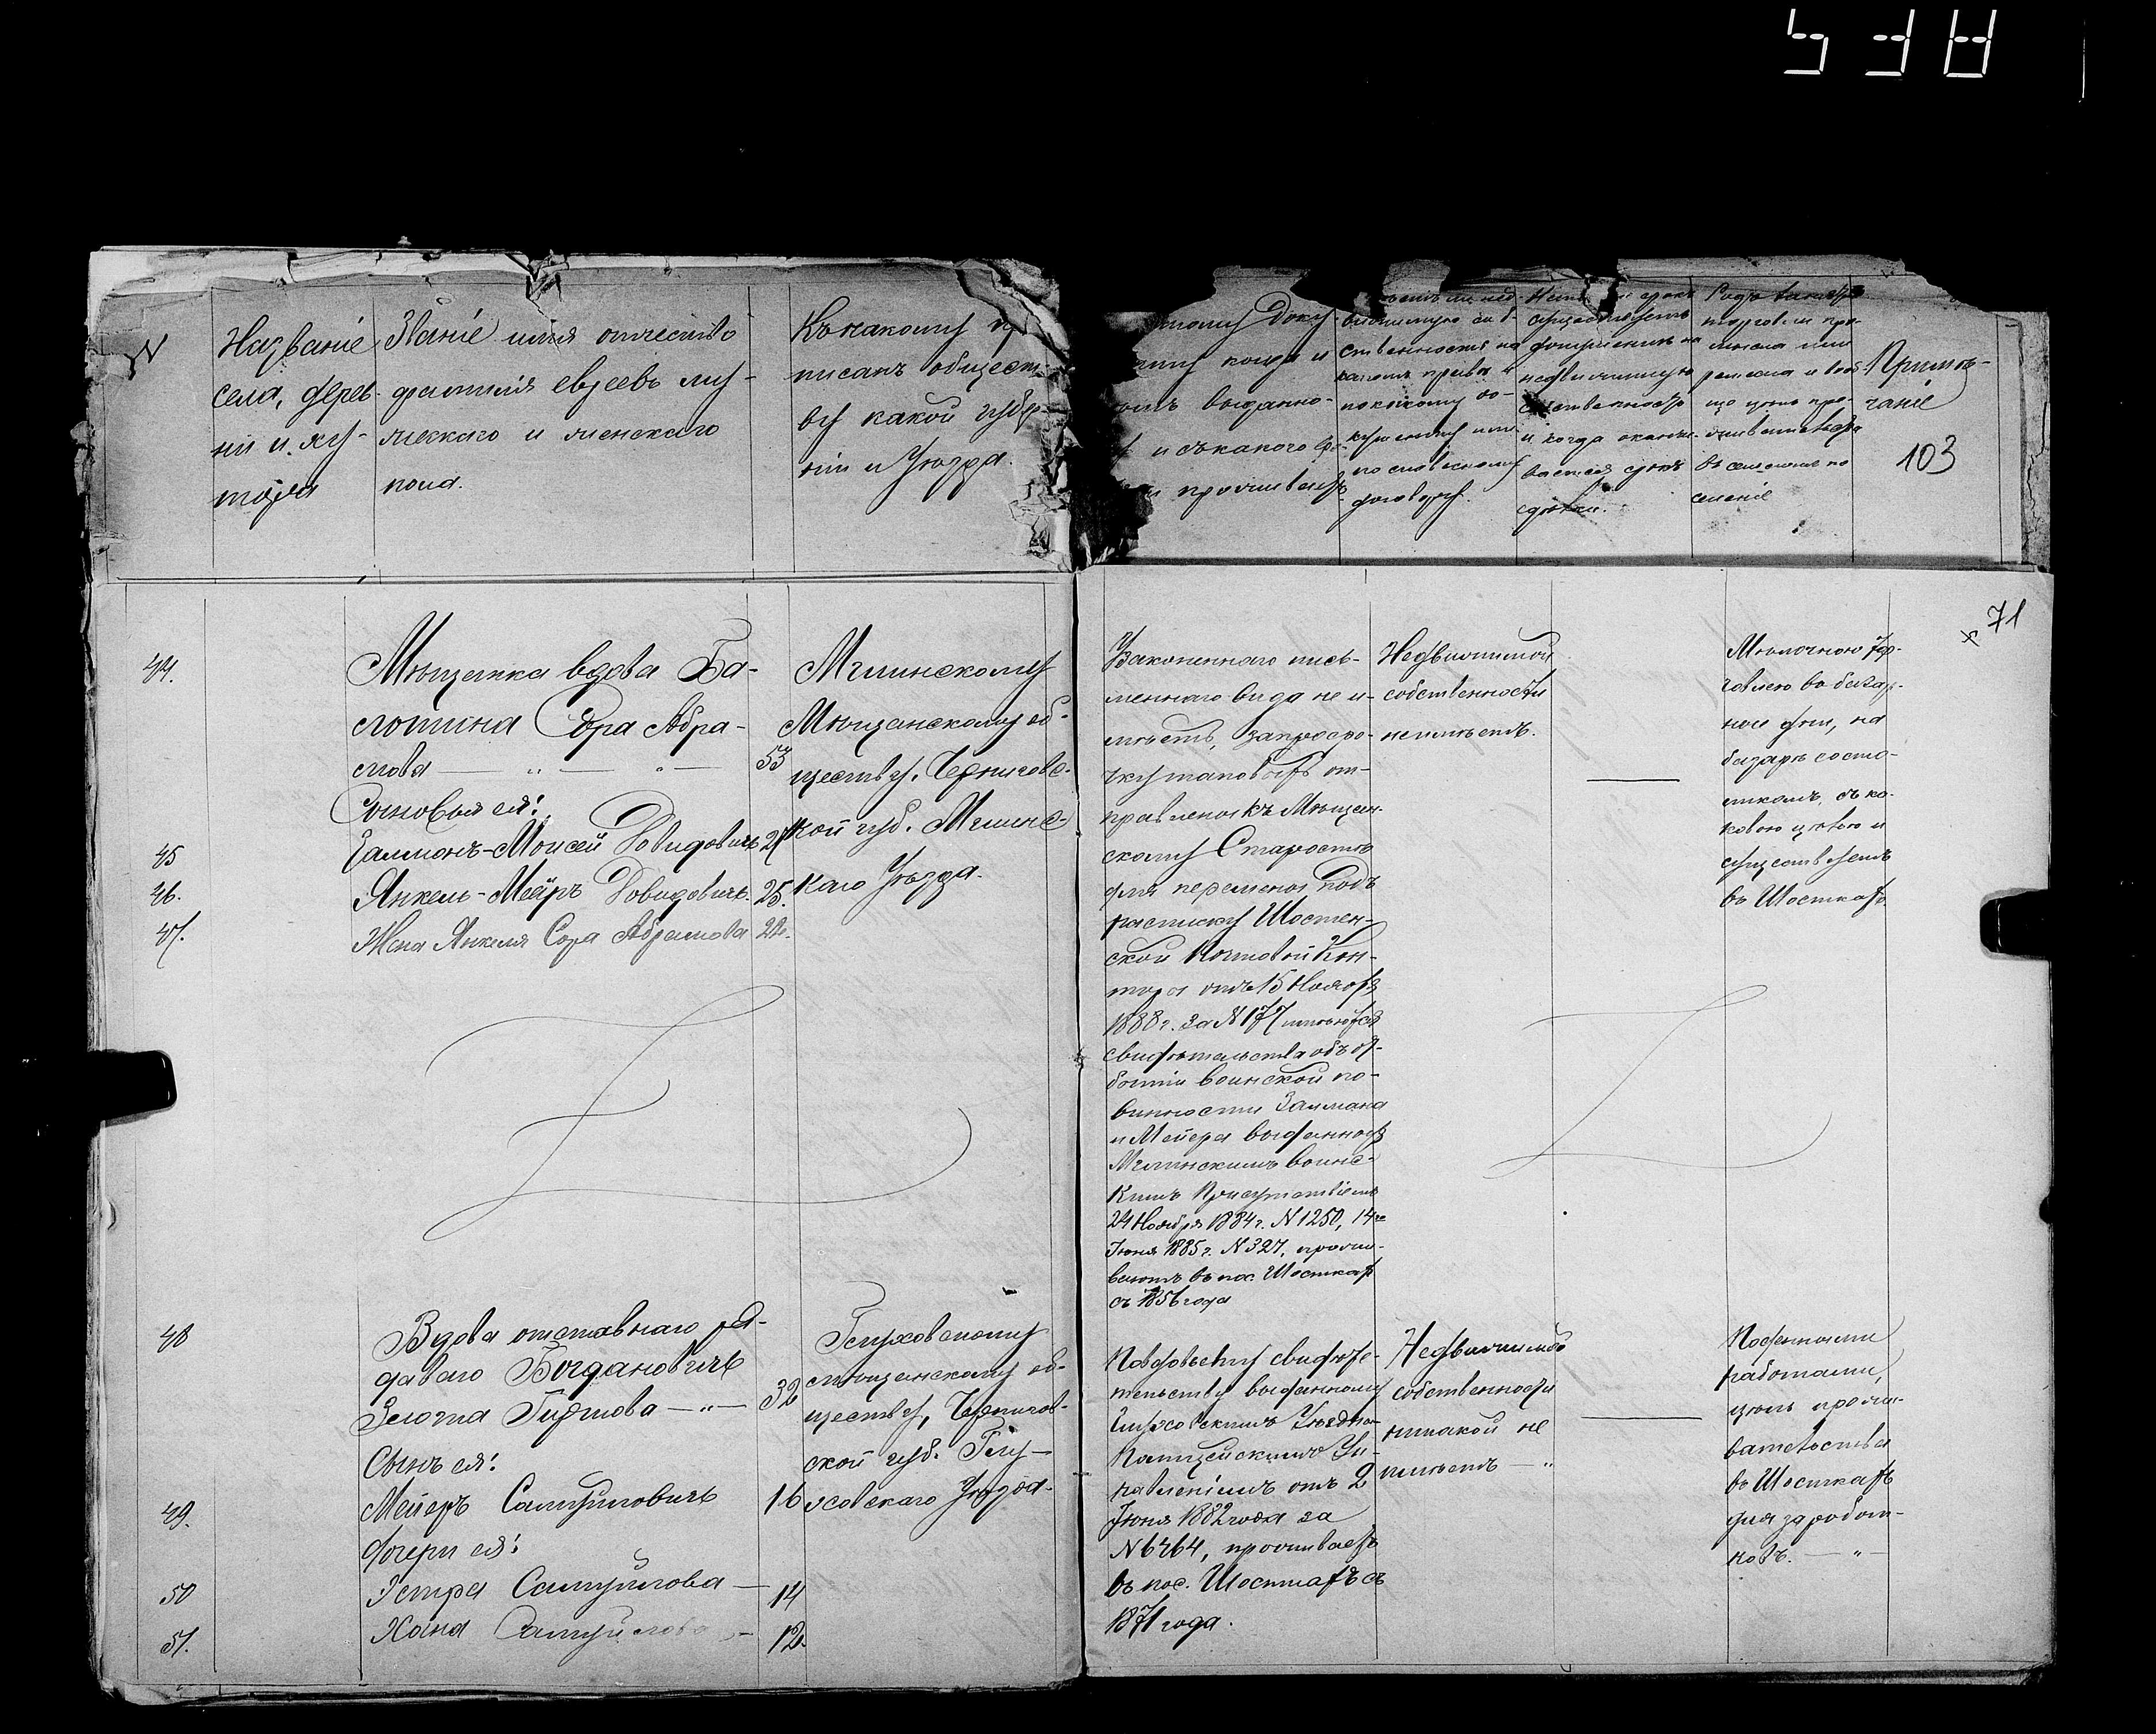 538
N
Названіе
села, дерев-
ни и ху-
тора
Званіе имя отчество
фамилія евреевъ муж-
ческаго и женскаго
пола.
Къ какому при
писанъ общест-
ву какой губер-
ніи и Уѣзда.
Доку
когда и
выданно-
и съ какого вре-
проживаетъ
ственность на
какомъ правѣ и
по какому до-
кументу или
по словесному
договору.
недвижимую
собственность
и когда оканчи-
вается срокъ
сдѣлки.
Родъ занятія
торговли про-
мысла или
ремесла и вооб-
ще цѣль про-
живательства
въ селеніе
Примѣ-
чаніе
103
71
44.
Мѣщанка вдова Ба-
слотина Сора Абра-
мова — „ — „ — 53
Сыновья ея:
45 Залмонъ-Мойсей Довидовичъ 27
46. Янкель-Мейръ Довидовичъ. 25.
47. Жена Янкеля Сора Абрамова 22.
Мглинскому
Мѣщанскому об-
ществу. Черниговс-
кой губ. Мглинс-
каго Уѣзда.
Узаконеннаго пись-
меннаго вида не и-
мѣетъ, запросро-
чкутановыхъ от-
правленъ къ Мѣщан-
скому Старостѣ
для перемены подъ
расписку Шостен-
ской Почтовой Кон-
торы отъ 15 Ноября
1888 г. за N 177 имѣются
свидѣтельства объ от-
бытіи воинской по-
винности Залмана
и Мейера выданные
Мглинскимъ воинс-
кимъ Присутствіемъ
24 Ноября 1884 г. N 1250, 14 го
Іюня 1885 г. N 327, прожи-
ваютъ въ пос. Шосткахъ
съ 1856 года
Недвижимой
собственности
не имѣетъ.
—
Мѣлочною тор-
говлею въ базар-
ные дни, на
базарѣ
съ ка-
ковою цѣлью и
существуетъ
въ Шосткахъ.
48
Вдова отставнаго ря-
доваго Богдановичъ
Злотна Гиршова — „ — 32
Сынъ ея:
49. Мейеръ Самуйловичъ 16
Дочери ея:
50 Эстра Самуйлова — 14
51. Хана Самуйлова — 12.
Глуховскому
мѣщанскому об-
ществу, Чернигов-
ской губ. Глу-
ховскаго Уѣзда.
По вдовьему свидѣте-
тельству выданному
Глуховскимъ Уѣзднымъ
Полицейскимъ Уп-
равленіемъ отъ 2
Іюня 1882 года за
N 6764, проживаетъ
въ пос. Шосткахъ съ
1871 года.
Недвижимой
собственности
никакой не
имѣетъ — „
—
Поденными
работами,
цель прожи-
вательства
въ Шосткахъ
для заработ-
ковъ. — „ —